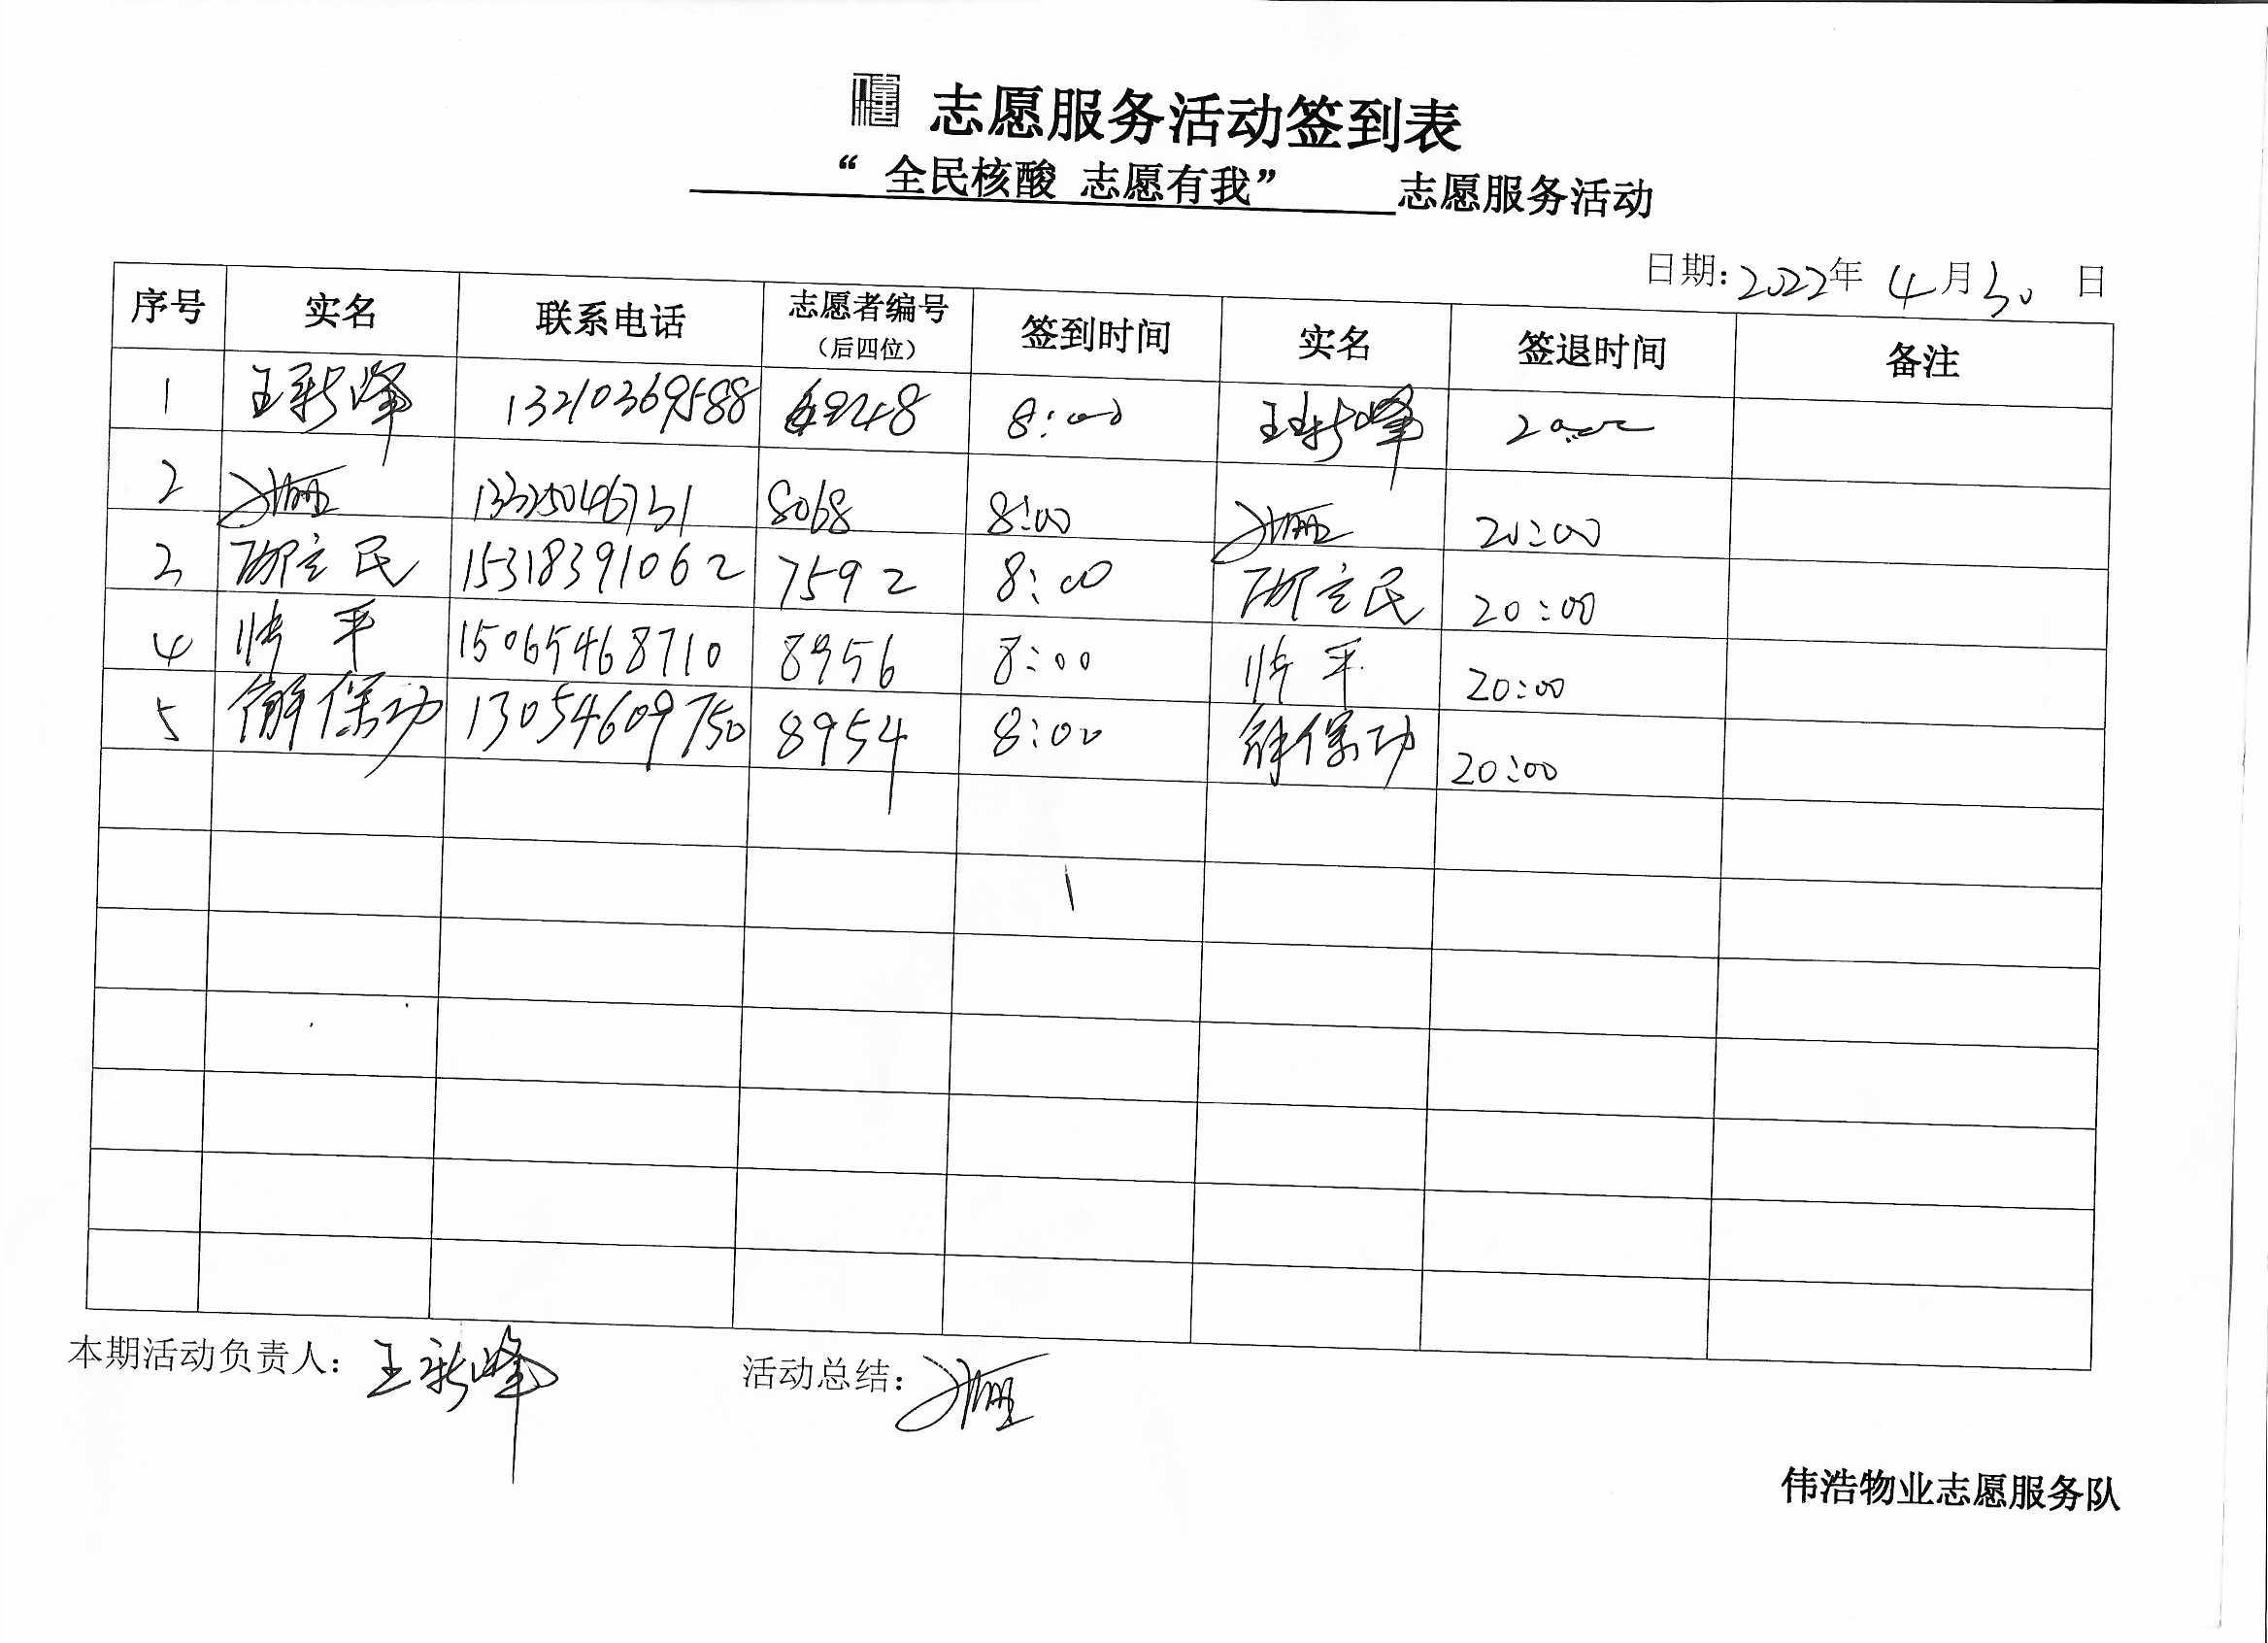 志愿服务活动签到表
“ 全民核酸 志愿有我” 志愿服务活动
日期: 2022年 4月30 日
序号 实名 联系电话 志愿者编号（后四位） 签到时间 实名 签退时间 备注
1 王新峰 13210369588 8248 8:00 王新峰 20:00
2 8068 8:00 20:00
3 邵立民 15318391062 7592 8:00 邵立民 20:00
4 平 15065468710 8956 8:00 平 20:00
5 解保功 13054609750 8954 8:00 解保功 20:00
本期活动负责人: 王新峰 活动总结:
伟浩物业志愿服务队